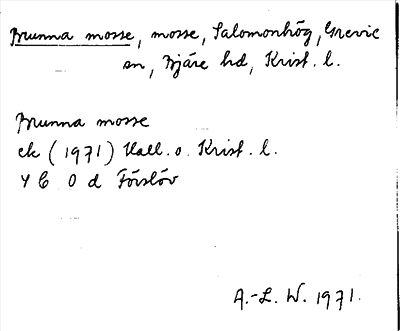 Brunna mosse, mosse, Salomonhög, Grevie
sn, Bjäre hd, Krist. l.
Brunna mosse
ek (1971) Hall. o. Krist. l.
4 C 0 d Förslöv
A.-L. W. 1971.